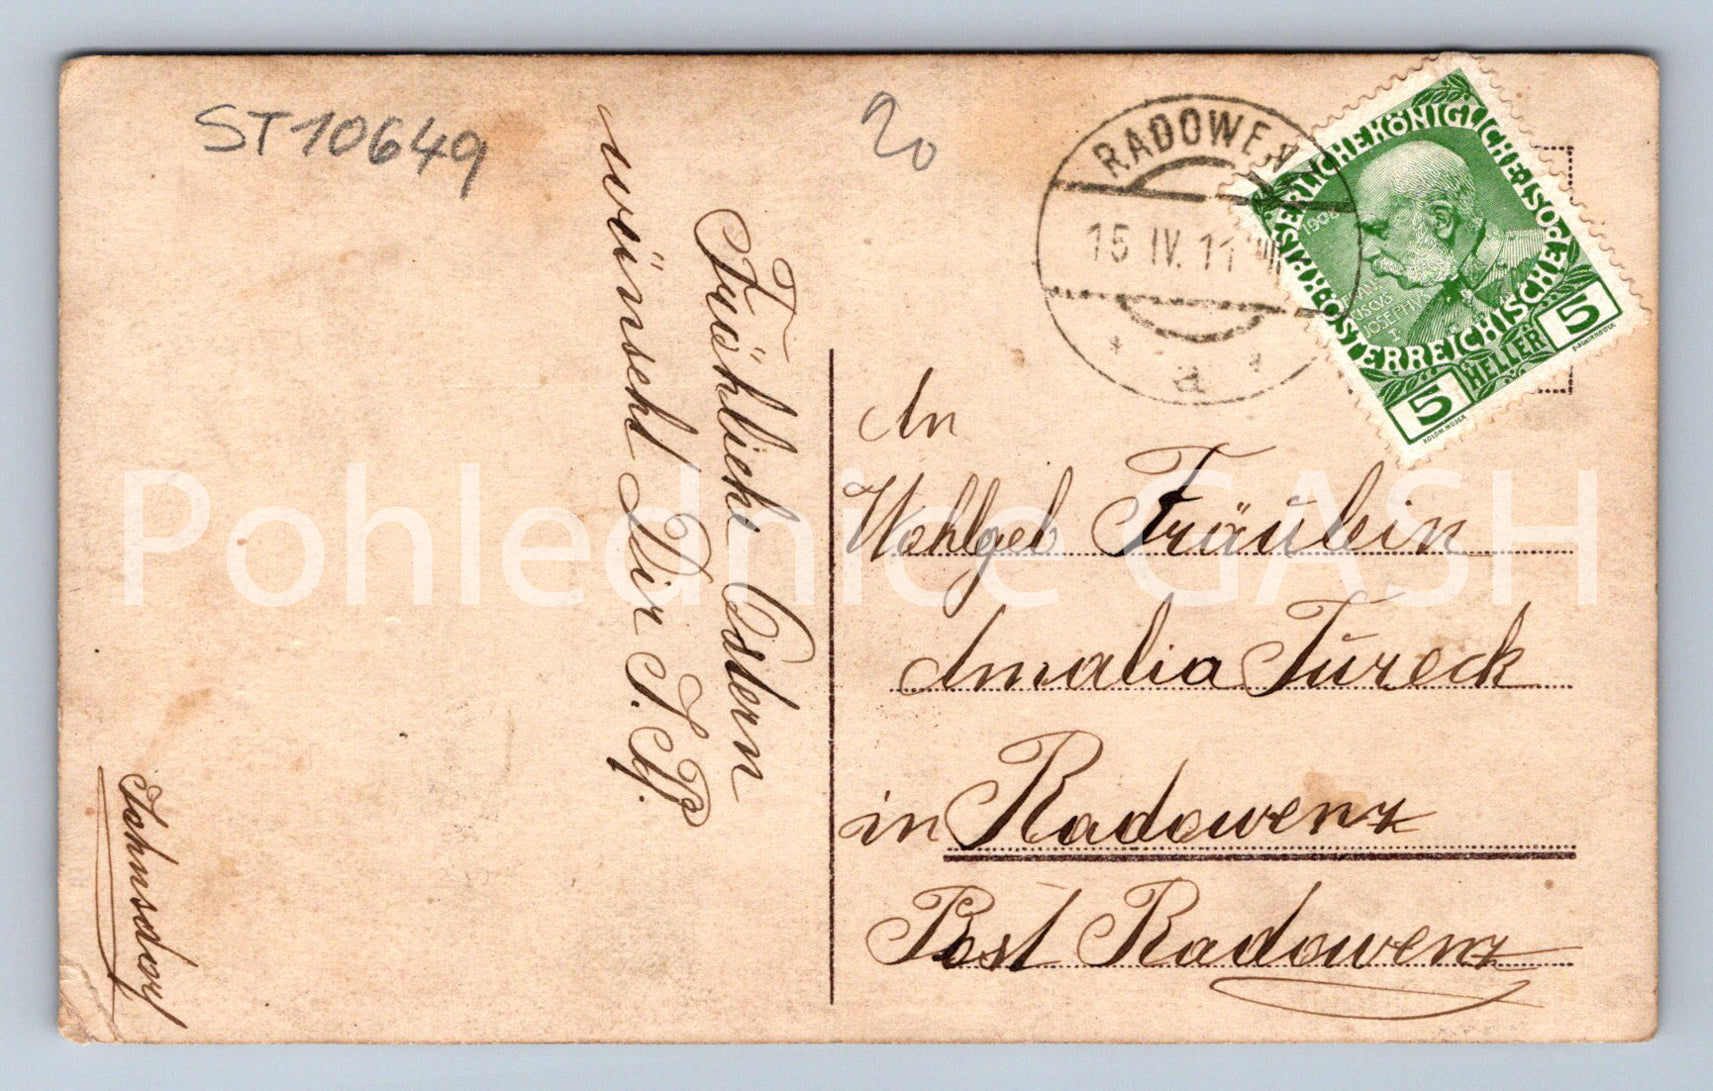 ST10649
20
RADOWENZ
15 IV. 11
a
KAISERLICHE KÖNIGLICHE
ÖSTERREICHISCHE POST
1908
JOSEPHVS
I.
5 HELLER 5
KOLOM. MOSER
Fröhliche Ostern
wünscht Dir
Johnsdorf
An
Wohlgeb Fräulein
Amalia Tureck
in Radowenz
Post Radowenz
Pohlednice GASH